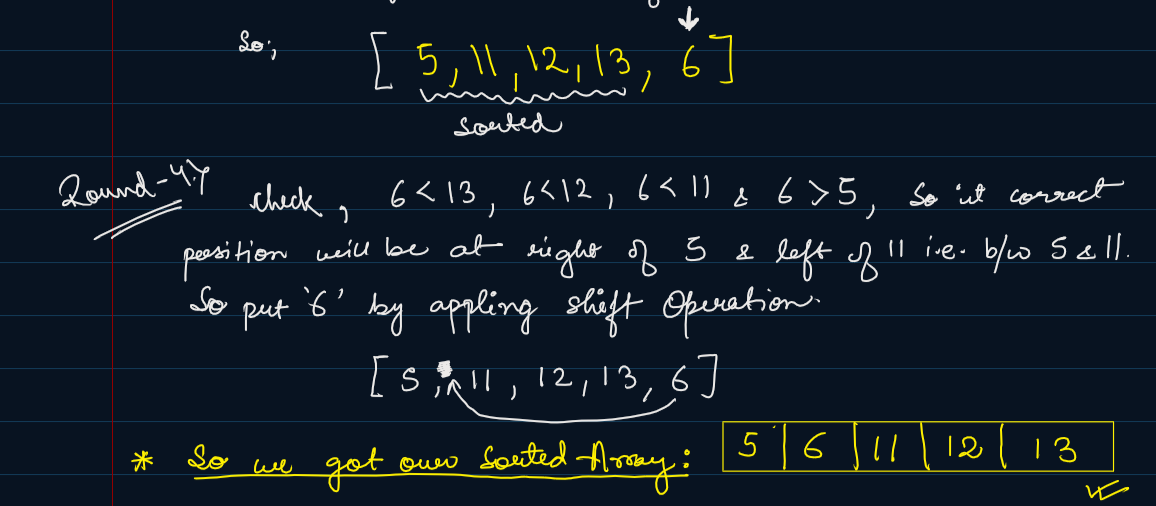 So;
[ 5, 11, 12, 13, 6 ]
sorted
Round-4:
check, 6 < 13, 6 < 12, 6 < 11 & 6 > 5, So it correct
position will be at right of 5 & left of 11 i.e. b/w 5 & 11.
So put '6' by appling shift Operation.
[ 5, 11, 12, 13, 6 ]
* So we got our Sorted Array: 5 | 6 | 11 | 12 | 13